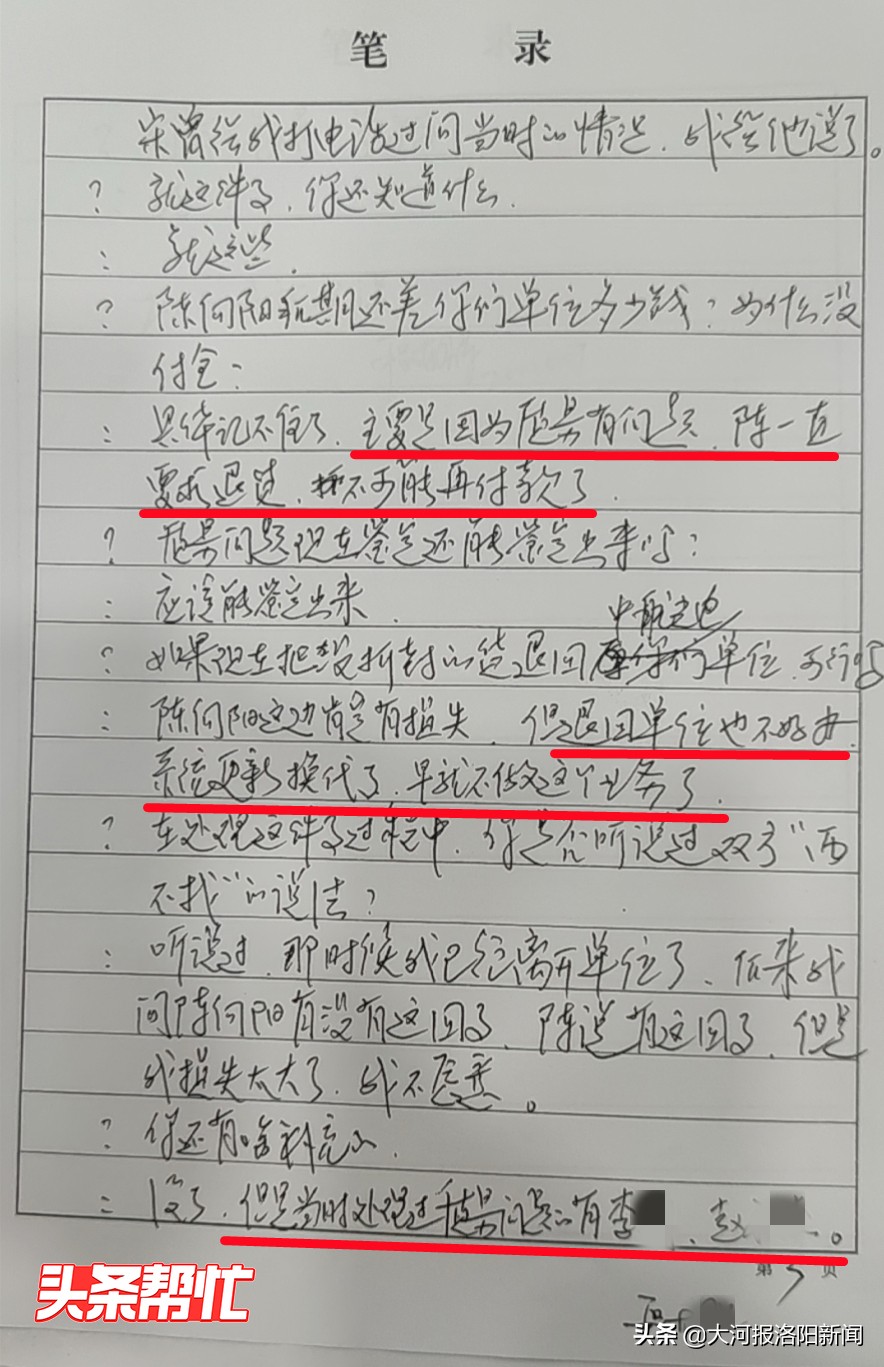 笔 录
宋曾经给我打电话过问当时的情况，我给他说了。
？ 就这件事，你还知道什么.
： 就这些.
？ 陈向阳到期还差你们单位多少钱？为什么没
付全：
： 具体记不住了，主要是因为质量有问题，陈一直
要求退货，不可能再付款了.
？ 质量问题现在鉴定还能鉴定出来吗？
： 应该能鉴定出来.
？ 如果现在把没拆封的货退回中航定边单位，可行吗
： 陈向阳这边肯定有损失，但退回单位也不好办.
系统更新换代了，早就不做这个业务了.
？ 在处理这件事过程中，你是否听说过双方“两
不找”的说法？
： 听说过，那时候我已经离开单位了，后来我
问陈向阳有没有这回事，陈说有这回事，但是
我损失太大了，我不愿意。
？ 你还有啥补充的.
： 没了，但是当时处理过质量问题的有李 、赵 。
第5页
头条帮忙
头条 @大河报洛阳新闻